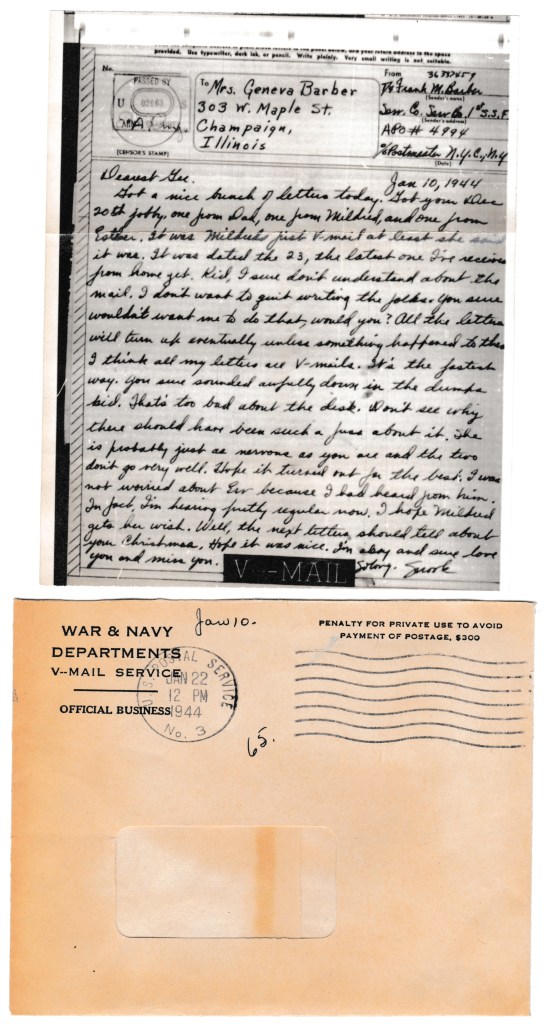 provided. Use typewriter, dark ink, or pencil. Write plainly. Very small writing is not suitable.
No.
PASSED BY
U S
(CENSOR'S STAMP)
To Mrs. Geneva Barber
303 W. Maple St.
Champaign,
Illinois
From
Frank M. Barber
(Sender's name)
Serv. Co. 1st S.S.F.
(Sender's address)
APO # 4994
c/o Postmaster N.Y.C., N.Y
(Date)
Jan 10, 1944
Dearest Gee.
Got a nice bunch of letters today. Got your Dec
20th jobby, one from Dad, one from Mildred, and one from
Esther. It was Mildreds first V-mail at least she said
it was. It was dated the 23, the latest one I've received
from home yet. Kid, I sure don't understand about the
mail. I don't want to quit writing the jokes. You sure
wouldn't want me to do that, would you? All the letters
will turn up eventually unless something happened to them
I think all my letters are V-mails. It's the fastest
way. You sure sounded awfully down in the dumps
kid. That's too bad about the desk. Don't see why
there should have been such a fuss about it. She
is probably just as nervous as you are and the two
don't go very well. Hope it turned out for the best. I was
not worried about Erv because I had heard from him.
In fact, I'm hearing pretty regular now. I hope Mildred
gets her wish. Well, the next letters should tell about
your Christmas. Hope it was nice. I'm okay and sure love
you and miss you. Solong. Snook
V--MAIL
WAR & NAVY
DEPARTMENTS
V--MAIL SERVICE
OFFICIAL BUSINESS
Jan 10.
U.S. POSTAL SERVICE
JAN 22
12 PM
1944
No. 3
PENALTY FOR PRIVATE USE TO AVOID
PAYMENT OF POSTAGE, $300
65.